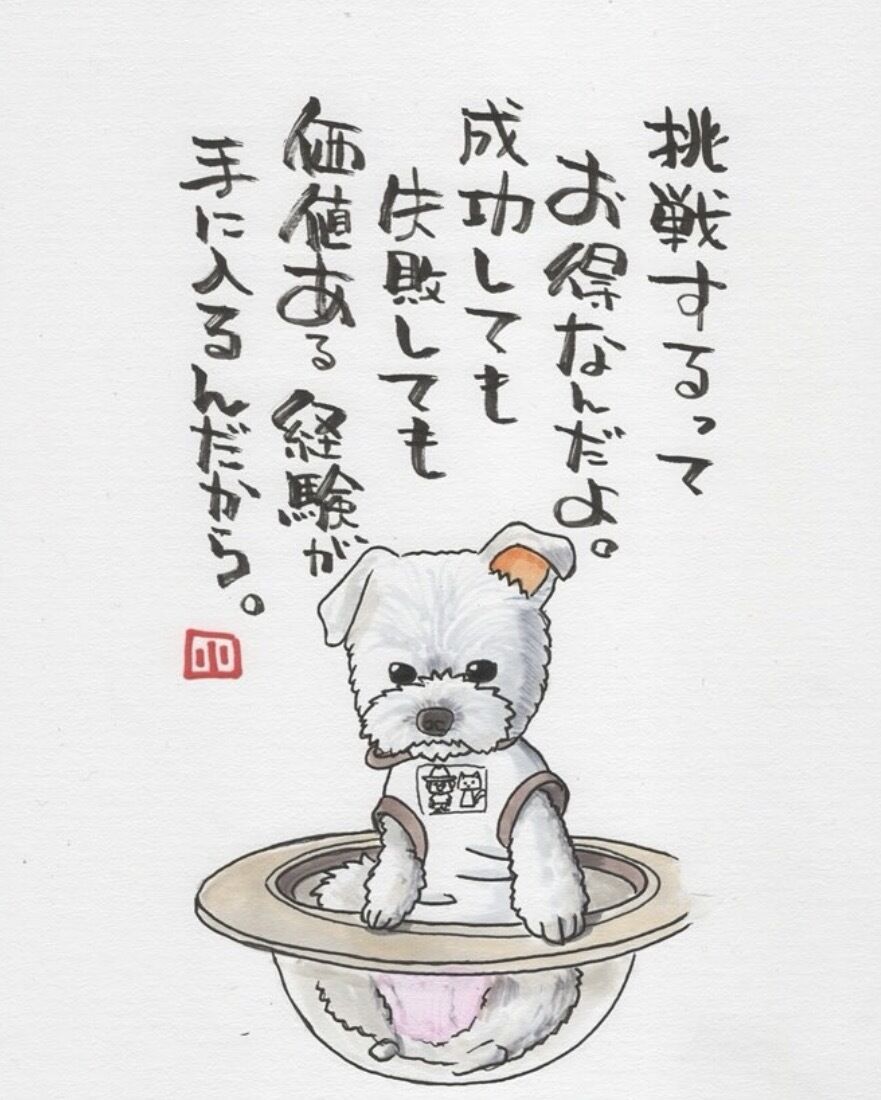 挑戦するって
お得なんだよ。
成功しても
失敗しても
価値ある経験が
手に入るんだから。